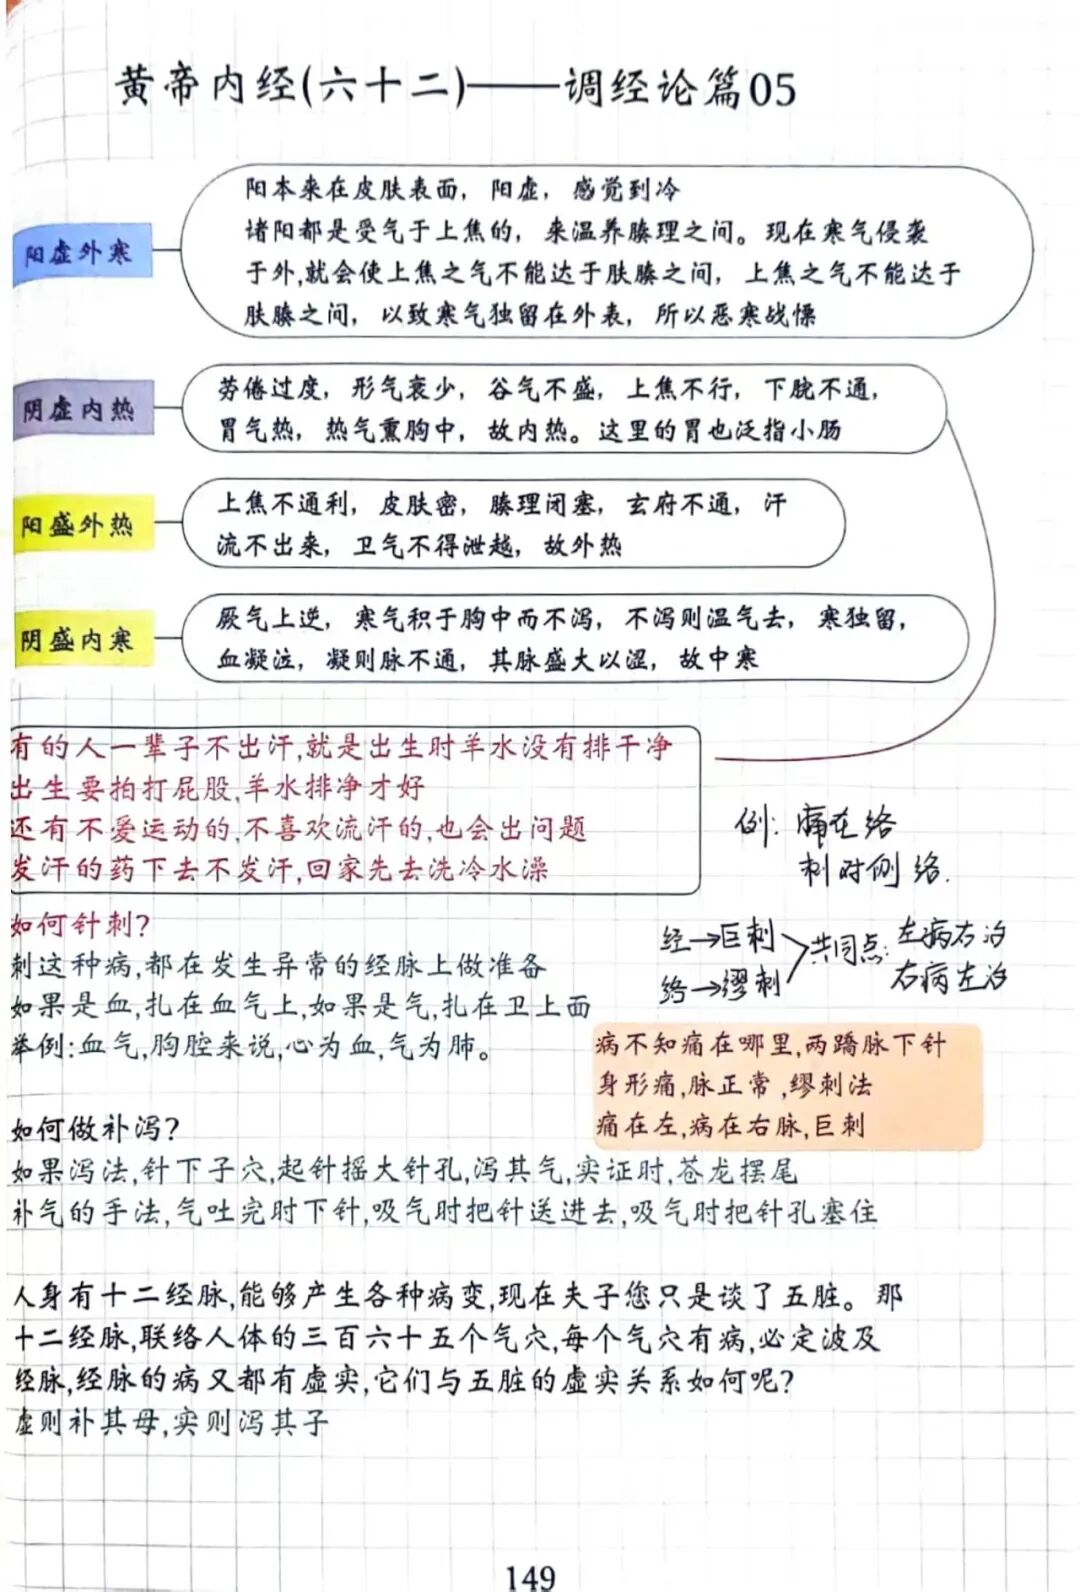 黄帝内经(六十二)——调经论篇05
阳虚外寒
阳本来在皮肤表面，阳虚，感觉到冷
诸阳都是受气于上焦的，来温养腠理之间。现在寒气侵袭
于外,就会使上焦之气不能达于肤腠之间，上焦之气不能达于
肤腠之间，以致寒气独留在外表，所以恶寒战慄
阴虚内热
劳倦过度，形气衰少，谷气不盛，上焦不行，下脘不通，
胃气热，热气熏胸中，故内热。这里的胃也泛指小肠
阳盛外热
上焦不通利，皮肤密，腠理闭塞，玄府不通，汗
流不出来，卫气不得泄越，故外热
阴盛内寒
厥气上逆，寒气积于胸中而不泻，不泻则温气去，寒独留，
血凝泣，凝则脉不通，其脉盛大以涩，故中寒
有的人一辈子不出汗,就是出生时羊水没有排干净
出生要拍打屁股,羊水排净才好
还有不爱运动的,不喜欢流汗的,也会出问题
发汗的药下去不发汗,回家先去洗冷水澡
例: 痛在络
刺对侧络.
如何针刺?
刺这种病,都在发生异常的经脉上做准备
如果是血,扎在血气上,如果是气,扎在卫上面
举例:血气,胸腔来说,心为血,气为肺。
经→巨刺
络→缪刺
共同点:
左病右治
右病左治
病不知痛在哪里,两蹻脉下针
身形痛,脉正常,缪刺法
痛在左,病在右脉,巨刺
如何做补泻?
如果泻法,针下子穴,起针摇大针孔,泻其气,实证时,苍龙摆尾
补气的手法,气吐完时下针,吸气时把针送进去,吸气时把针孔塞住
人身有十二经脉,能够产生各种病变,现在夫子您只是谈了五脏。那
十二经脉,联络人体的三百六十五个气穴,每个气穴有病,必定波及
经脉,经脉的病又都有虚实,它们与五脏的虚实关系如何呢?
虚则补其母,实则泻其子
149